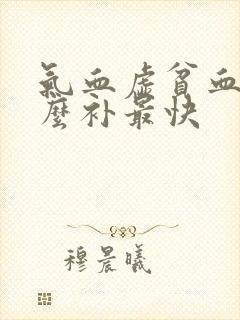 氣血虛貧血
麼补最快
穆晨曦